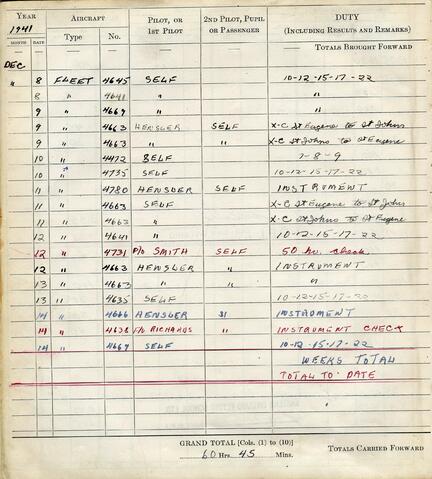 YEAR AIRCRAFT PILOT, OR 2ND PILOT, PUPIL DUTY
1941 1ST PILOT OR PASSENGER (INCLUDING RESULTS AND REMARKS)
MONTH DATE Type No.
TOTALS BROUGHT FORWARD
DEC
" 8 FLEET 4645 SELF 10-12-15-17-22
8 " 4641 " "
9 " 4669 " "
9 " 4663 HENSLER SELF X-C St Eugene to St Johns
9 " 4663 " " X-C St Johns to St Eugene
10 " 4472 SELF 7-8-9
10 " 4735 SELF 10-12-15-17-22
11 " 4780 HENSLER SELF INSTRUMENT
11 " 4663 SELF X-C St Eugene to St Johns
11 " 4663 " X-C St Johns to St Eugene
12 " 4641 " 10-12-15-17-22
12 " 4731 P/O SMITH SELF 50 hr. check
12 " 4663 HENSLER " INSTRUMENT
13 " 4663 " "
13 " 4635 SELF 10-12-15-17-22
14 " 4646 HENSLER " INSTRUMENT
14 " 4636 F/O RICHARDS " INSTRUMENT CHECK
14 " 4669 SELF 10-12-15-17-22
WEEKS TOTAL
TOTAL TO DATE
GRAND TOTAL [Cols. (1) to (10)]
60 Hrs. 45 Mins.
TOTALS CARRIED FORWARD